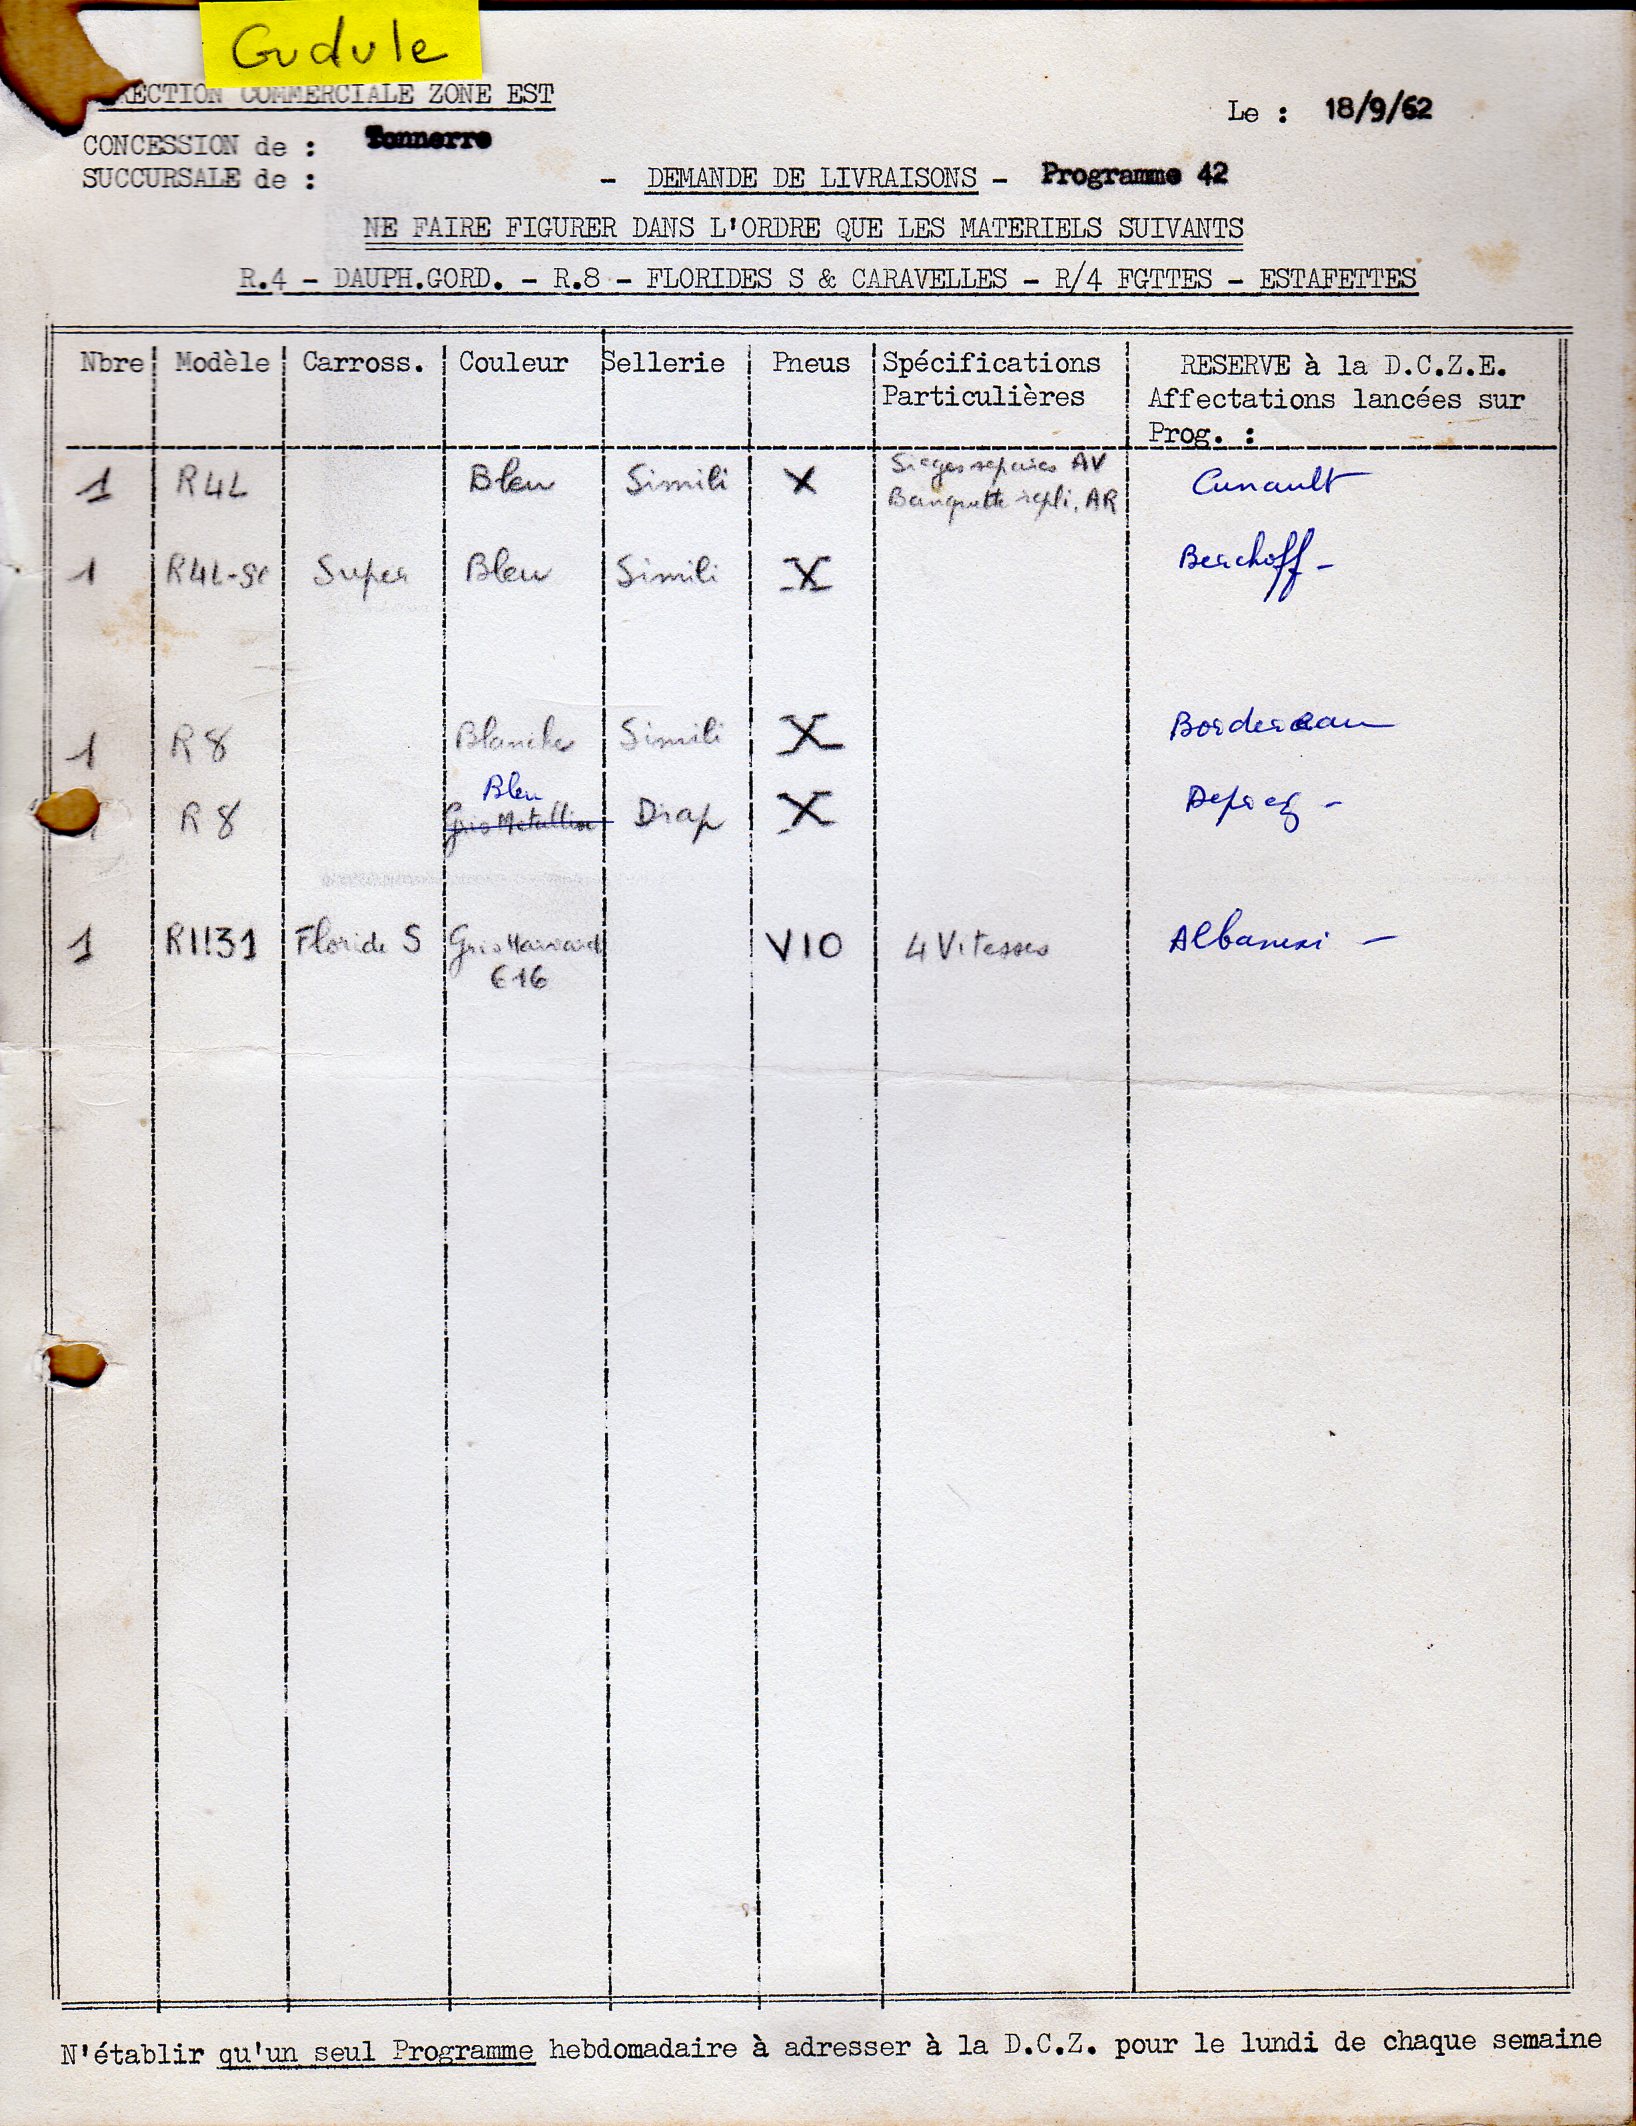 Gudule
RECTION COMMERCIALE ZONE EST
Le : 18/9/62
CONCESSION de : Tonnerre
SUCCURSALE de :
- DEMANDE DE LIVRAISONS - Programme 42
NE FAIRE FIGURER DANS L'ORDRE QUE LES MATERIELS SUIVANTS
R.4 - DAUPH.GORD. - R.8 - FLORIDES S & CARAVELLES - R/4 FGTTES - ESTAFETTES
Nbre Modèle Carross. Couleur Sellerie Pneus Spécifications RESERVE à la D.C.Z.E.
Particulières Affectations lancées sur
Prog. :
Sieges separés AV
1 R4L Bleu Simili X Cunault
Banquette repli. AR
1 R4L-Sc Super Bleu Simili X Berchoff -
1 R8 Blanche Simili X Bordereau
Bleu
1 R8 Gris Metallisé Drap X -
1 R1131 Floride S Gris Harvard V10 4 Vitesses Albanesi -
616
N'établir qu'un seul Programme hebdomadaire à adresser à la D.C.Z. pour le lundi de chaque semaine